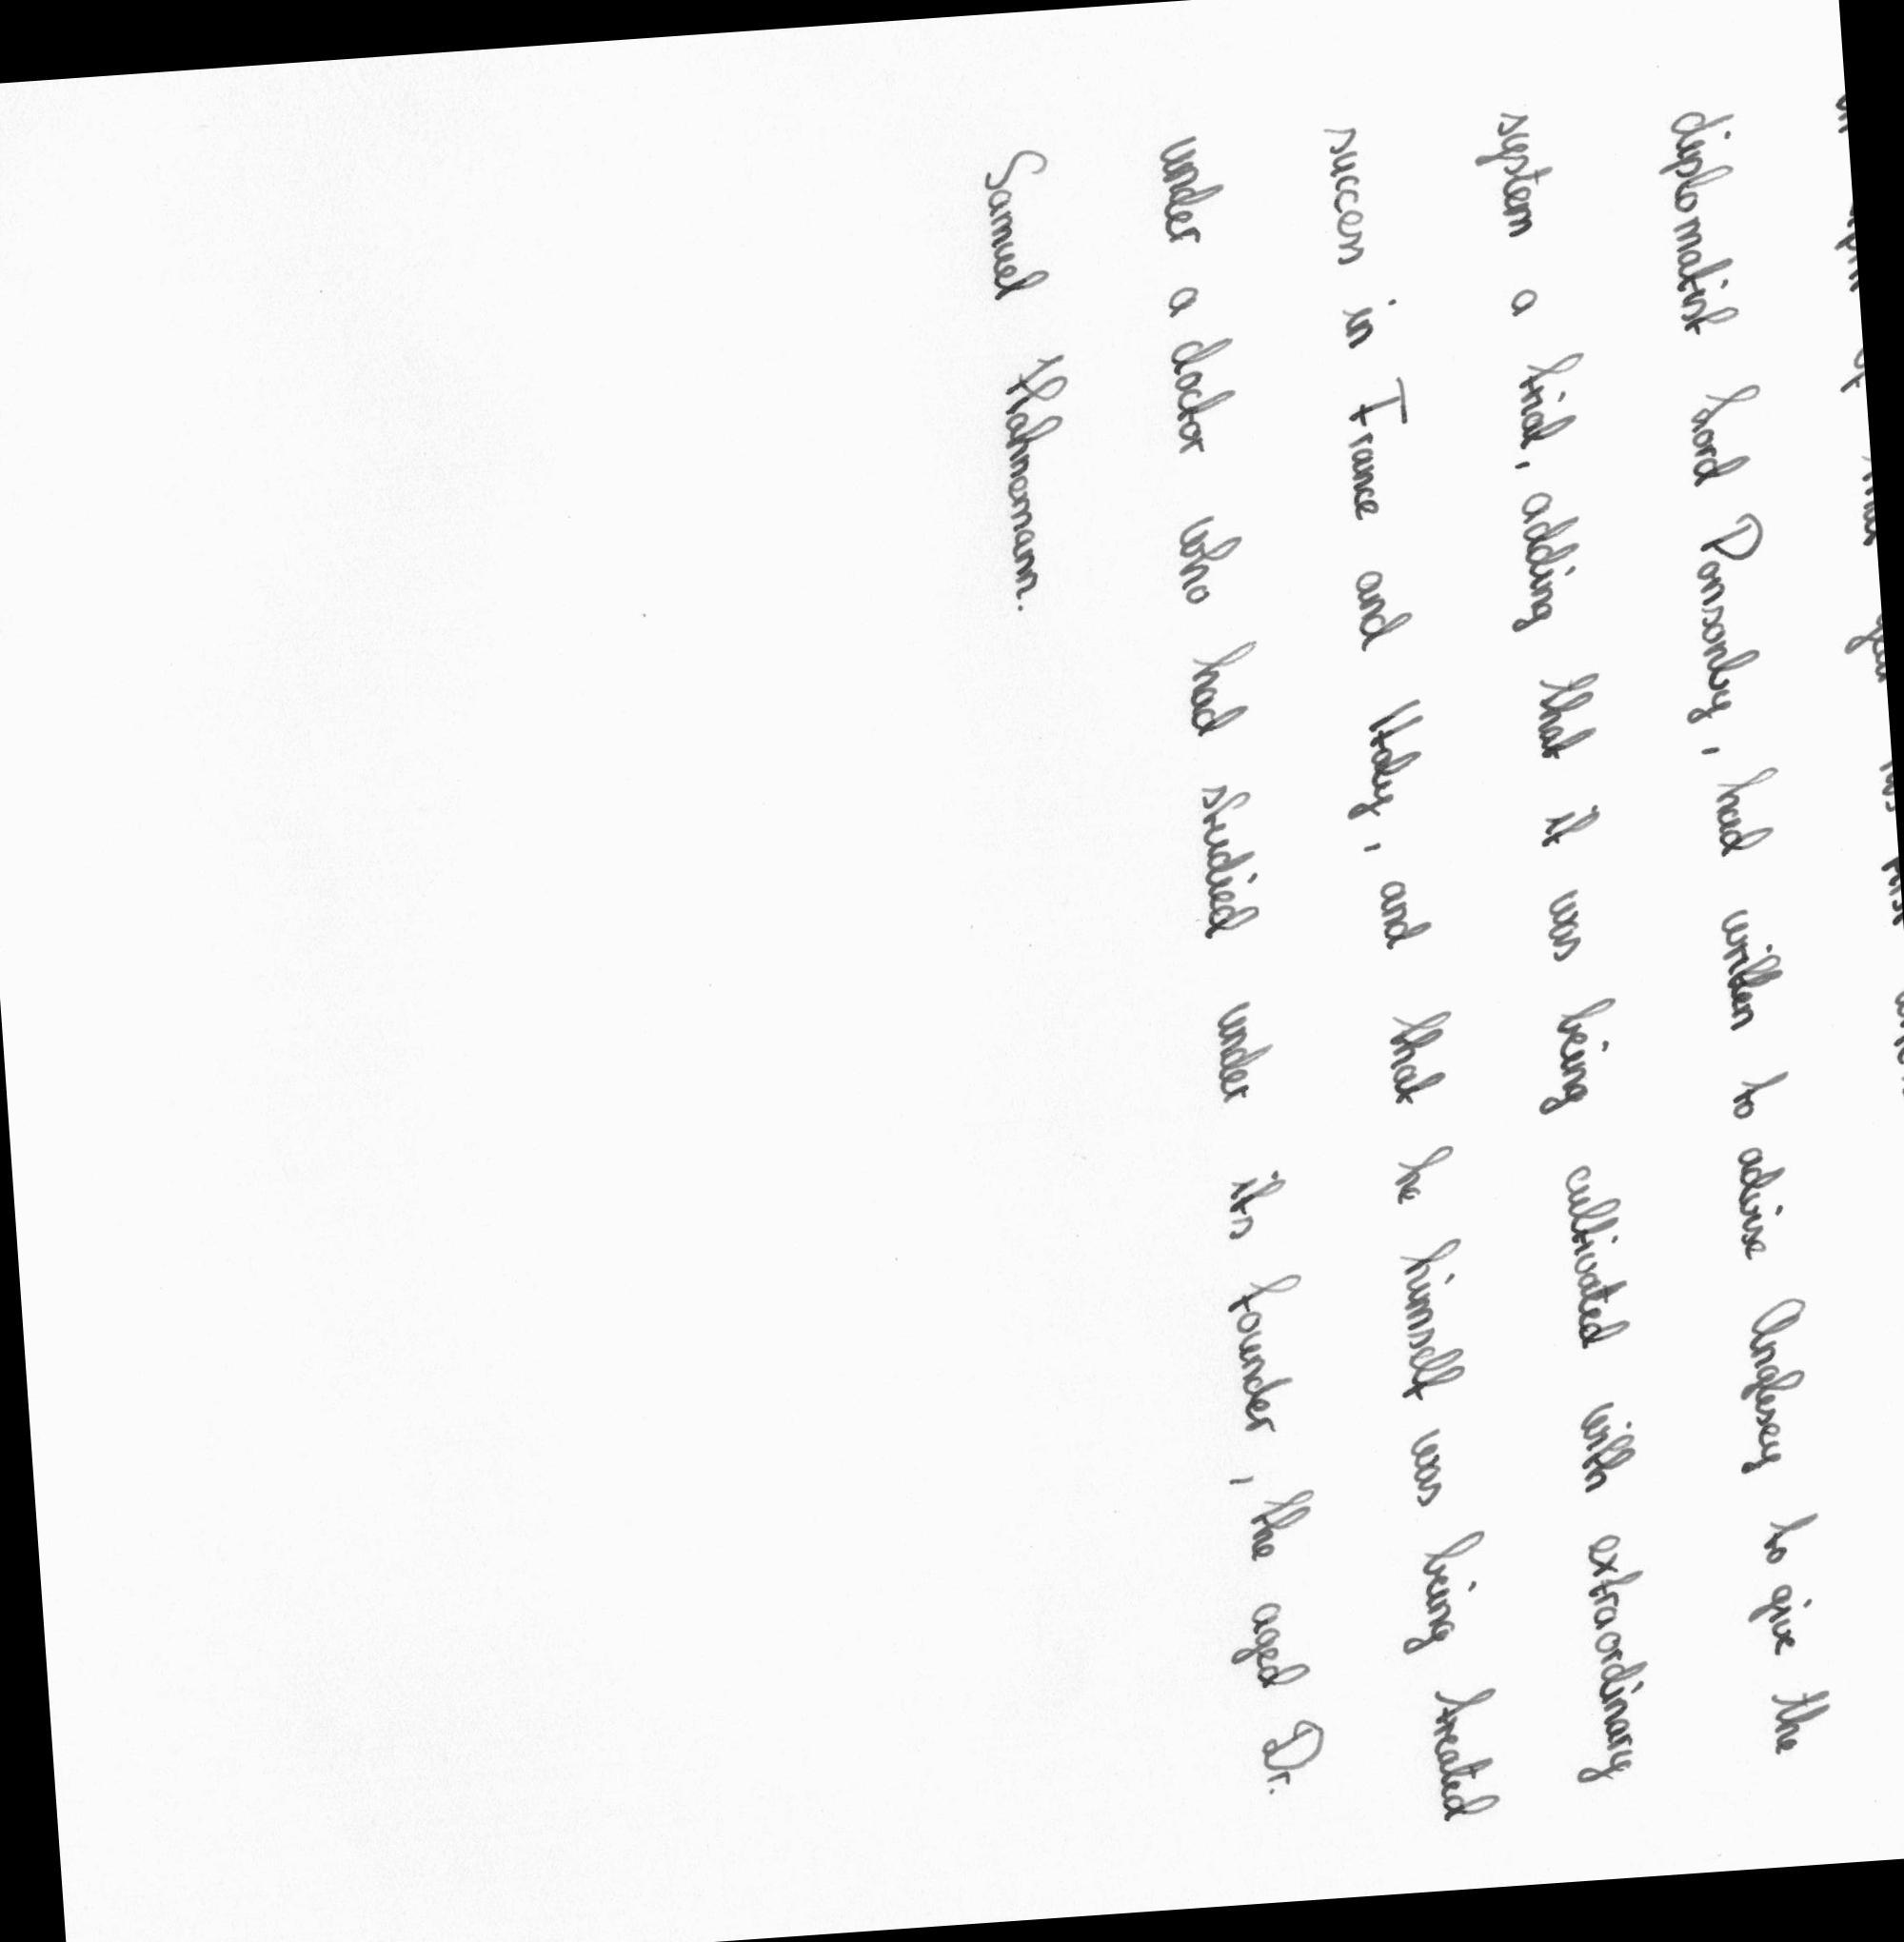 diplomatist Lord Ponsonby, had written to advise Anglesey to give the
system a trial, adding that it was being cultivated with extraordinary
success in France and Italy, and that he himself was being treated
under a doctor who had studied under its founder, the aged Dr.
Samuel Hahnemann.